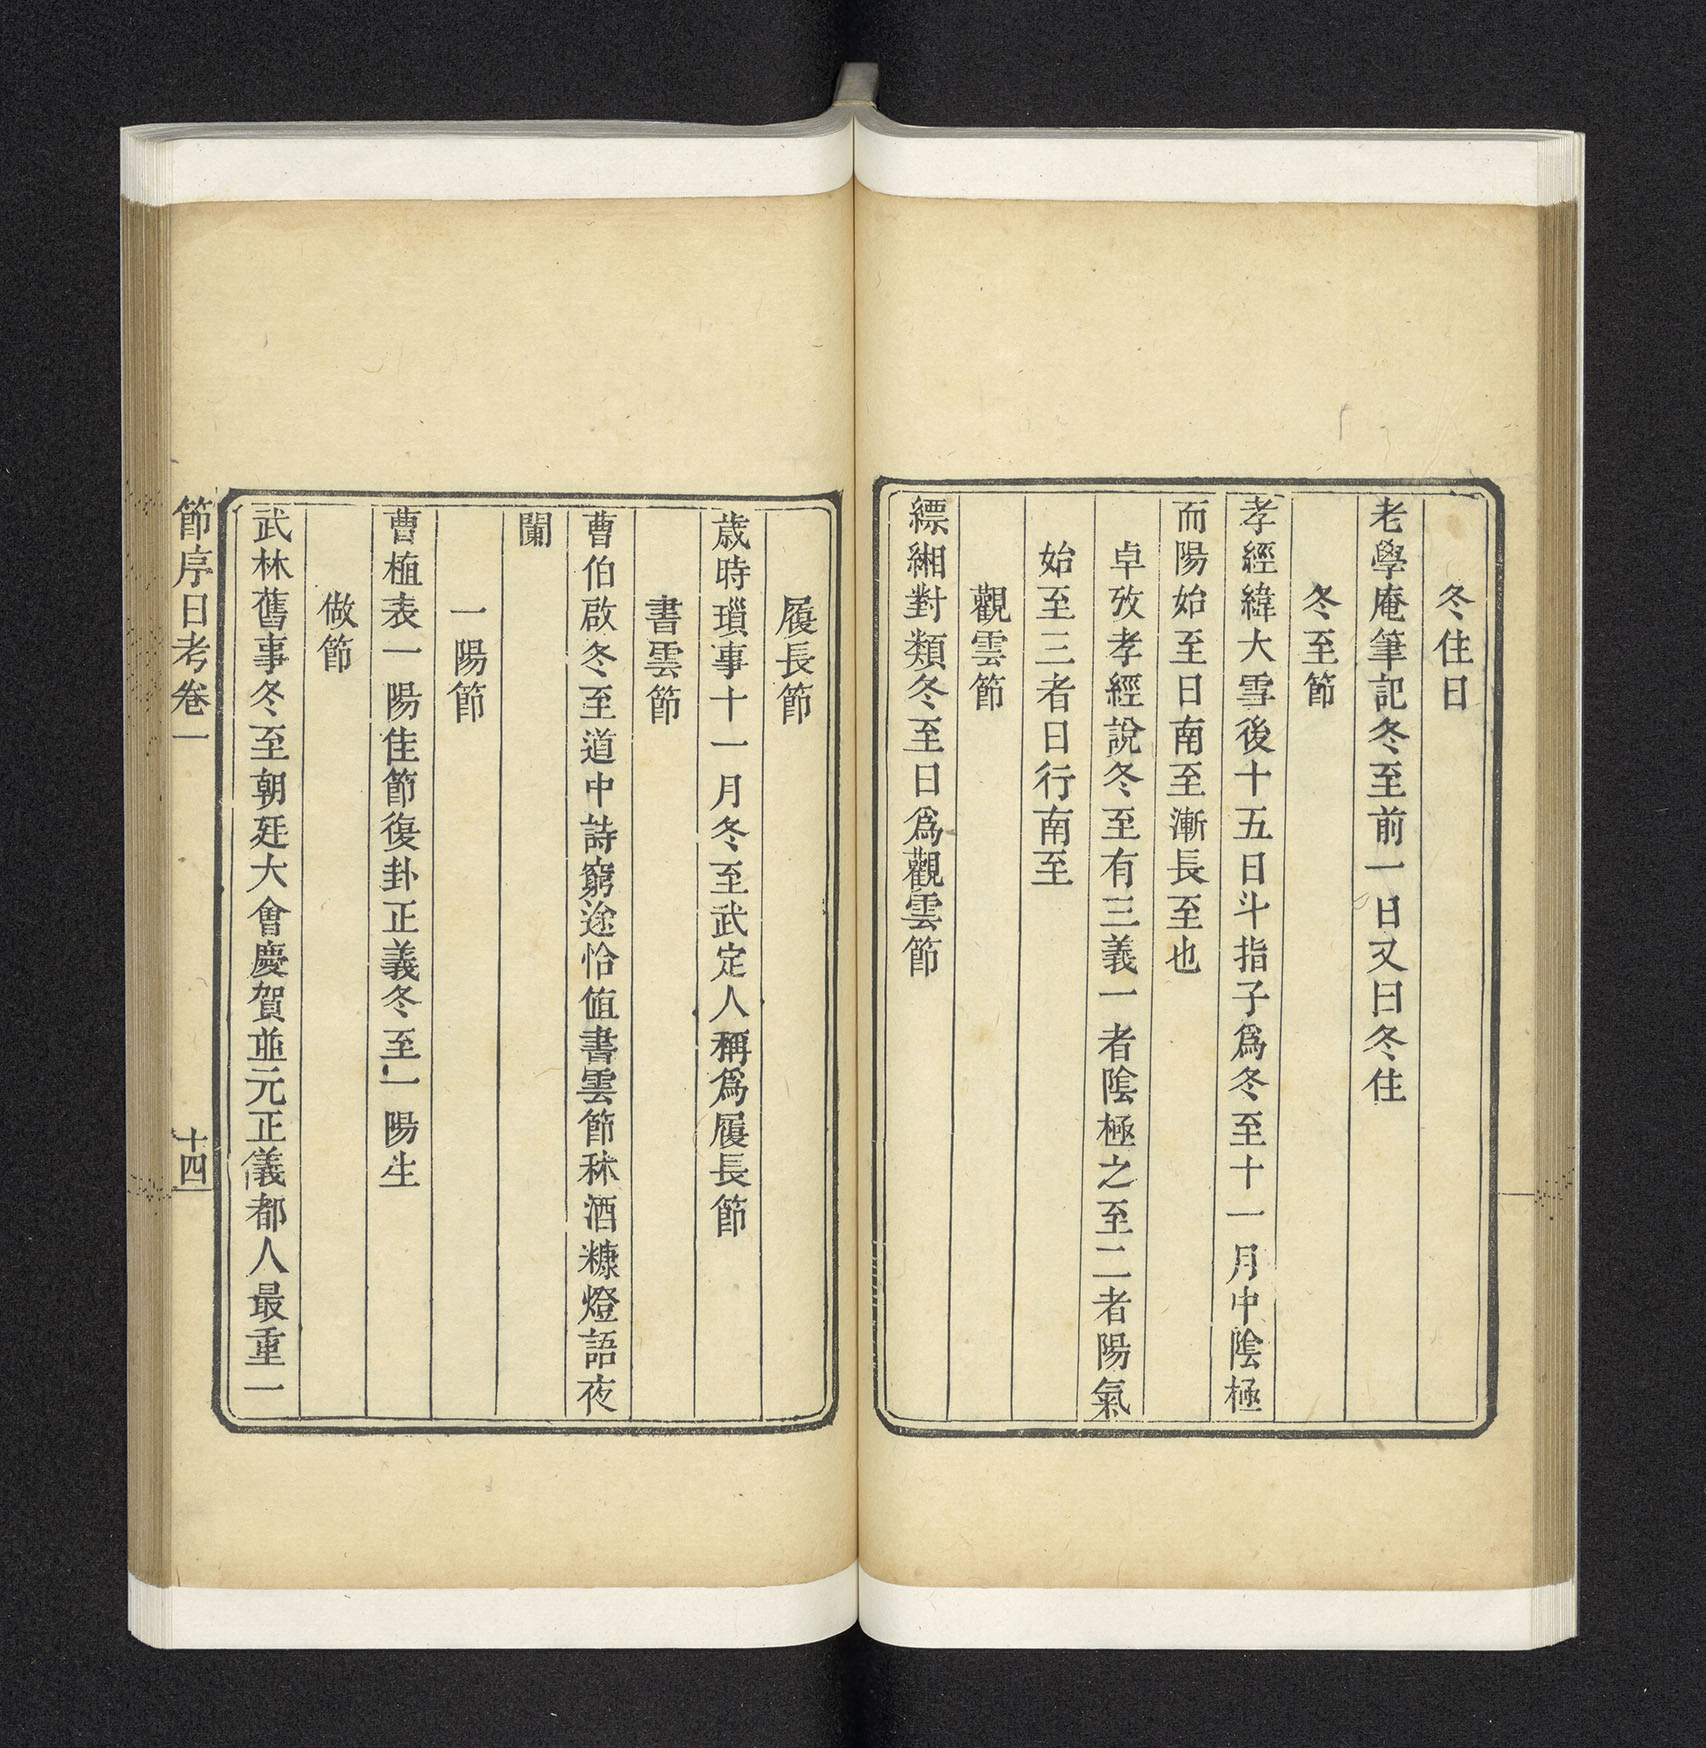 冬住日
老學庵筆記冬至前一日又曰冬住
冬至節
孝經緯大雪後十五日斗指子爲冬至十一月中陰極
而陽始至日南至漸長至也
卓攷孝經說冬至有三義一者陰極之至二者陽氣
始至三者日行南至
觀雲節
縹緗對類冬至日爲觀雲節
履長節
歲時瑣事十一月冬至武定人稱爲履長節
書雲節
曹伯啟冬至道中詩窮途恰值書雲節秫酒糠燈語夜
闌
一陽節
曹植表一陽佳節復卦正義冬至一陽生
做節
武林舊事冬至朝廷大會慶賀並元正儀都人最重一
節序日考卷一
十四